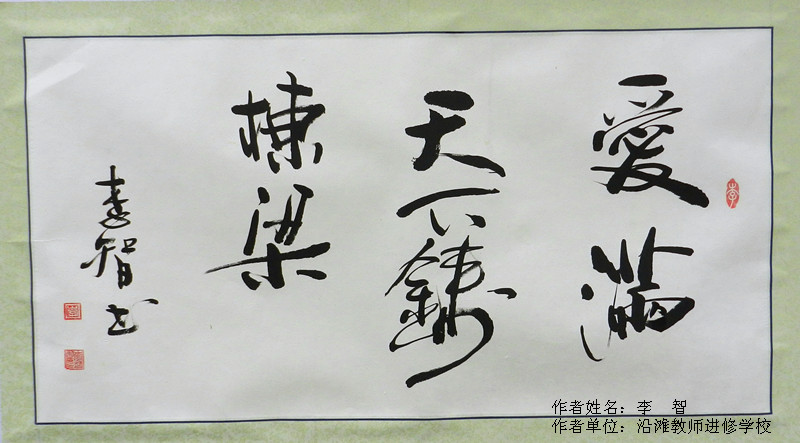 愛滿
天下鑄
棟梁
李智书
李
作者姓名：李　智
作者单位：沿滩教师进修学校